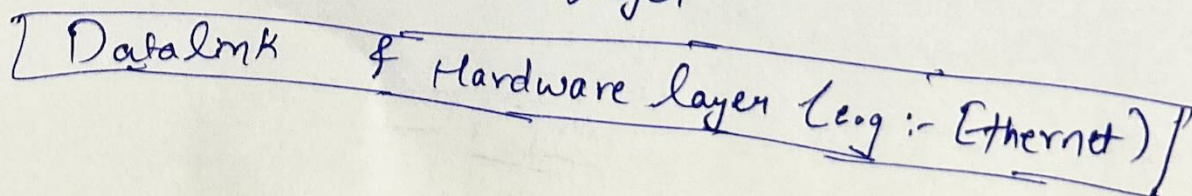 Datalink & Hardware layer (eg :- Ethernet)